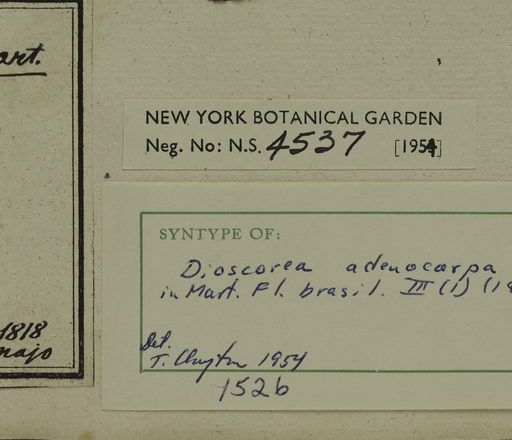 art.
1818
majo
NEW YORK BOTANICAL GARDEN
Neg. No: N.S. 4537 [1954]
SYNTYPE OF:
Dioscorea adenocarpa
in Mart. Fl. brasil. III (1) (18
Det.
T. Clayton 1954
1526